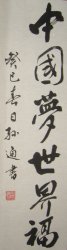 中國夢世界福
癸巳春日孫通書